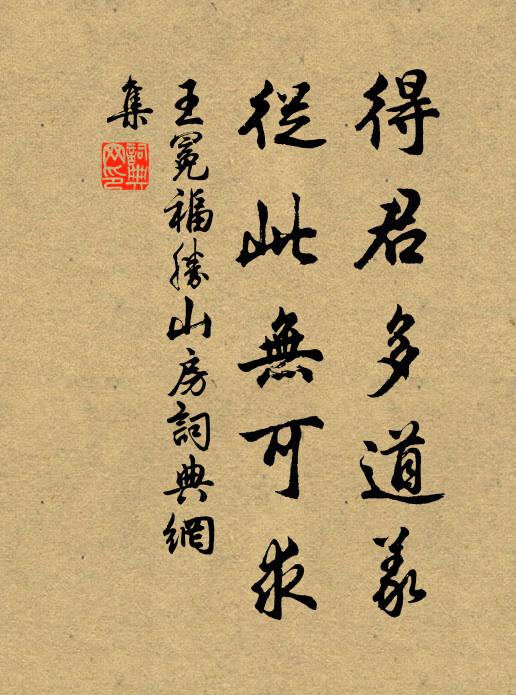 得君多道義
從此無可求
王冕福勝山房詞典網
集
詞典網印